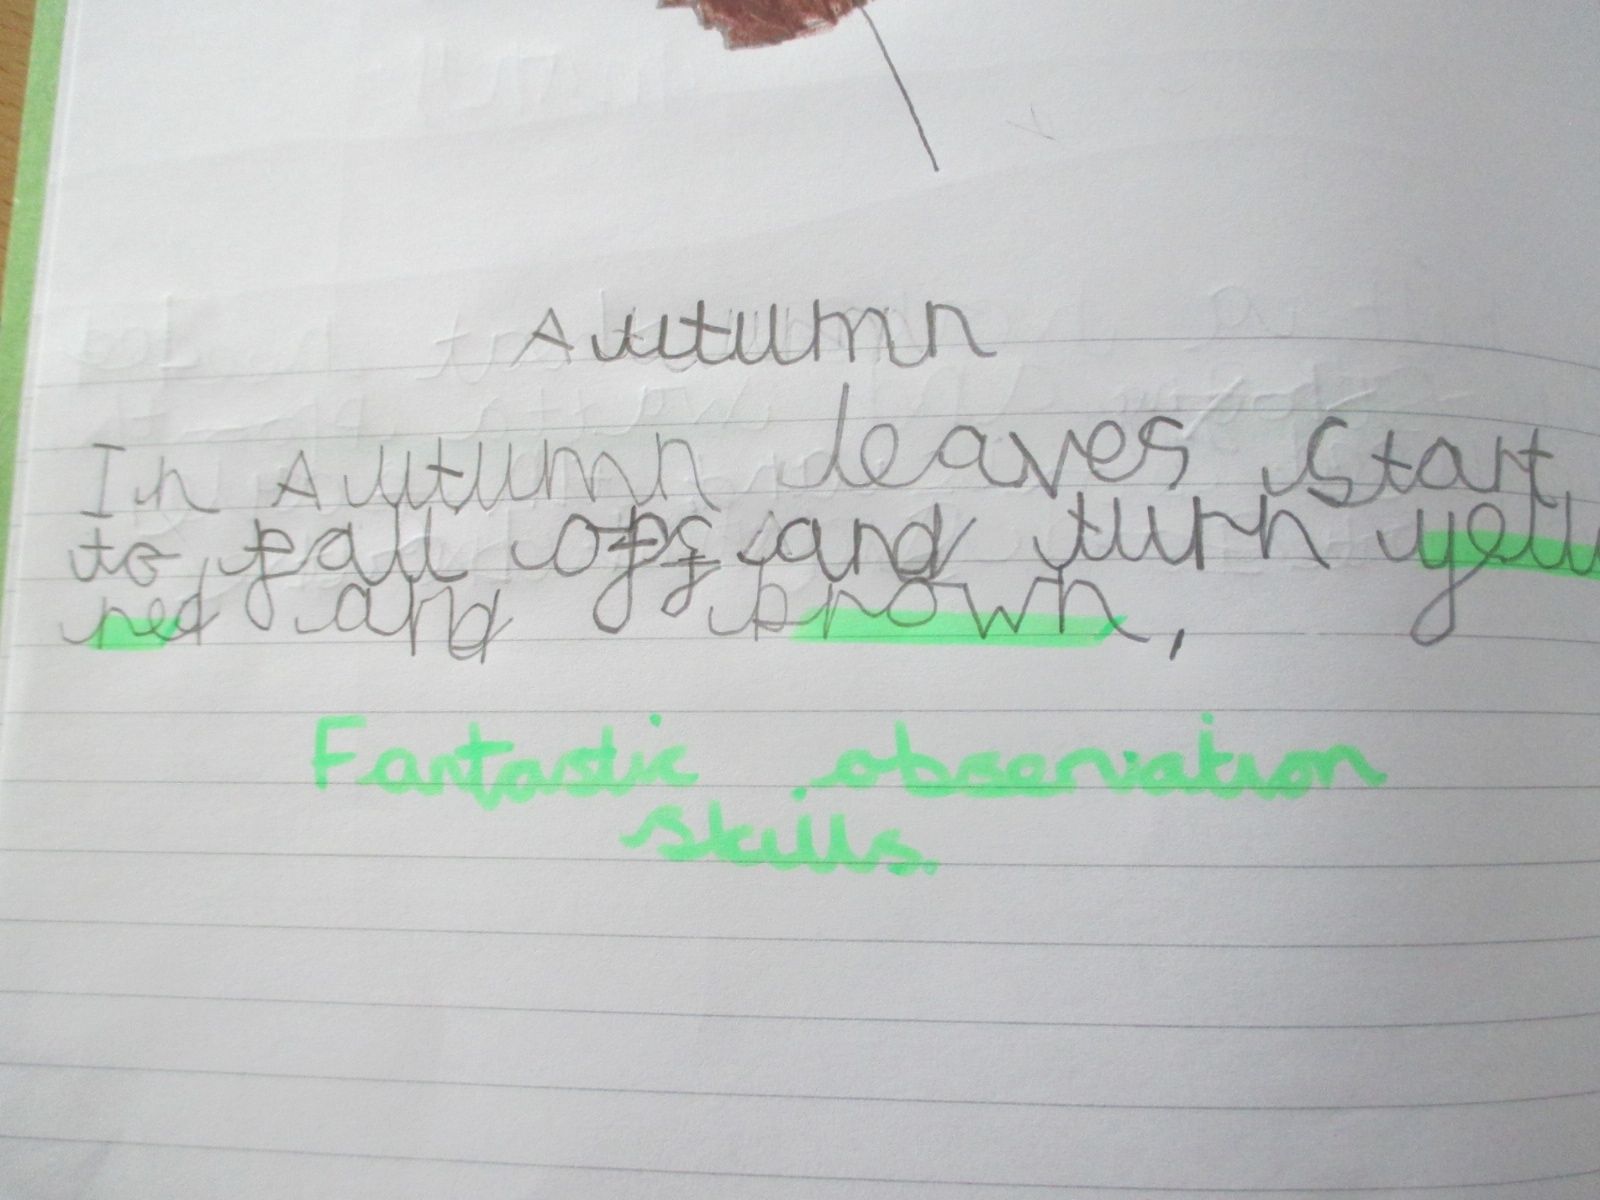 Autumn
In Autumn leaves start
to fall off and turn
red and brown,
Fantastic observation
skills.